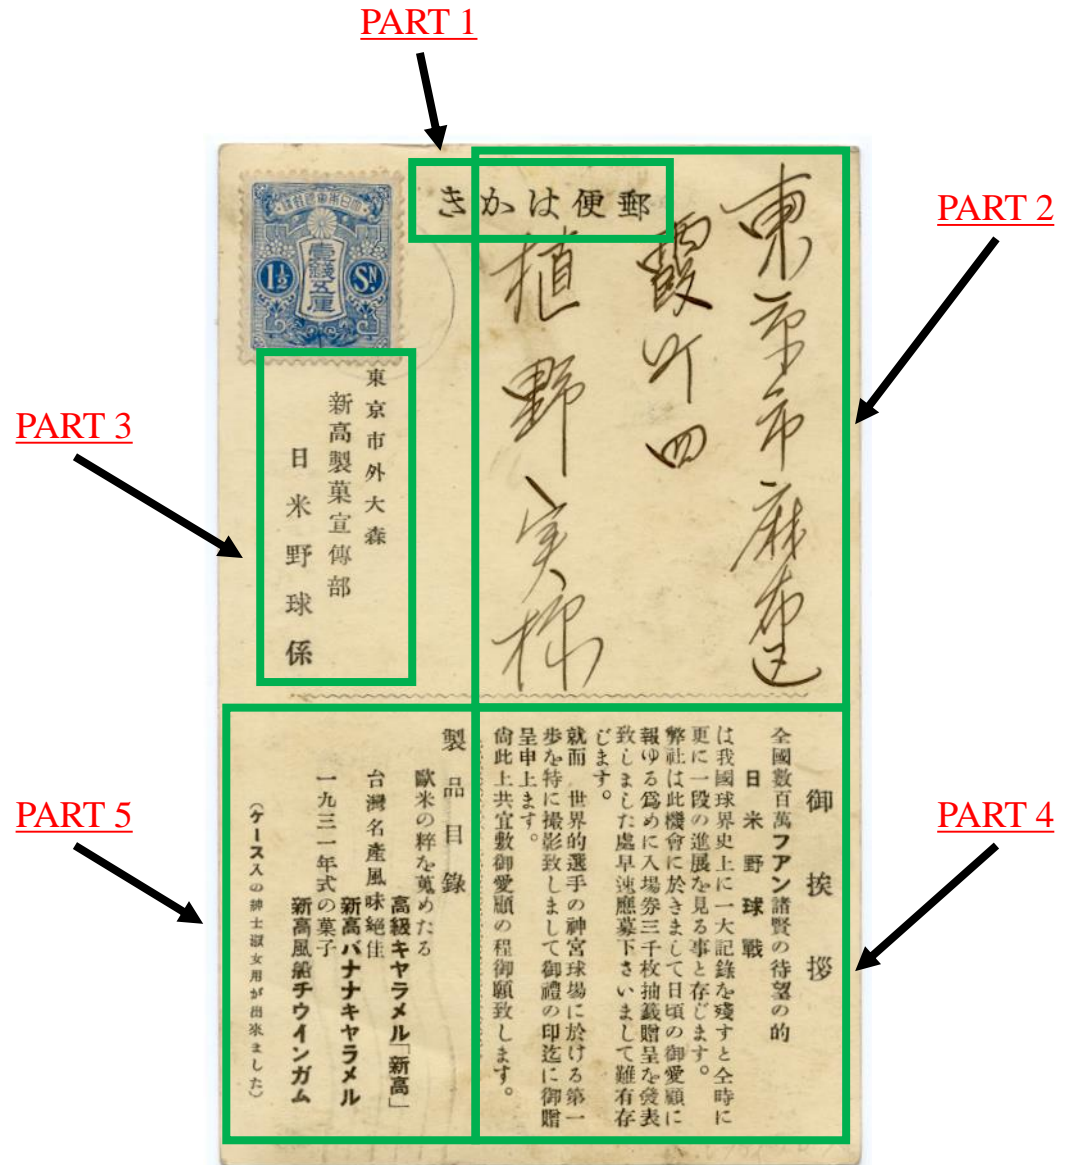 PART 1
郵便はかき
PART 2
東京市麻布区
霞町四
植野実様
1½
壹錢五厘
SN
PART 3
東京市外大森
新高製菓宣傳部
日米野球係
PART 4
御挨拶
全國數百萬フアン諸賢の待望の的
日米野球戰
は我國球界史上に一大記錄を殘すと仝時に
更に一段の進展を見る事と存じます。
弊社は此機會に於きまして日頃の御愛顧に
報ゆる爲めに入場券三千枚抽籤贈呈を發表
致しました處早速應募下さいまして難有存
じます。
就而、世界的選手の神宮球場に於ける第一
步を特に撮影致しまして御禮の印迄に御贈
呈申上ます。
尙此上共宜敷御愛顧の程御願致します。
PART 5
製品目錄
歐米の粹を蒐めたる
高級キヤラメル「新高」
台灣名產風味絕佳
新高バナナキヤラメル
一九三一年式の菓子
新高風船チウインガム
（ケース入の紳士淑女用が出來ました）